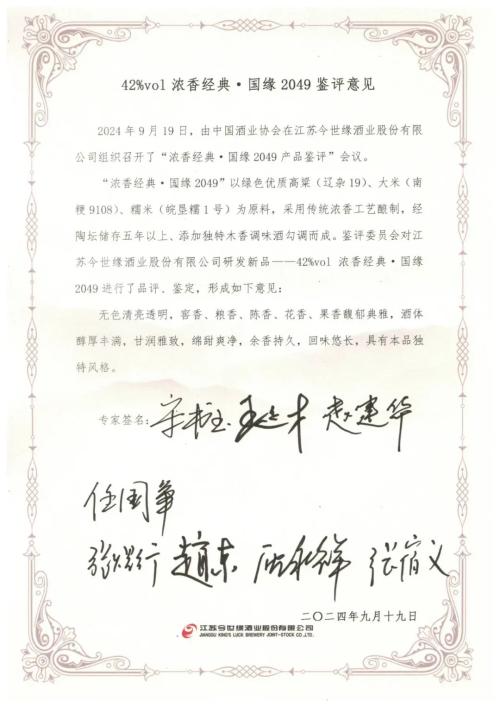 42%vol 浓香经典·国缘 2049 鉴评意见
2024 年 9 月 19 日，由中国酒业协会在江苏今世缘酒业股份有限
公司组织召开了“浓香经典·国缘 2049 产品鉴评”会议。
“浓香经典·国缘 2049”以绿色优质高粱（辽杂 19）、大米（南
粳 9108）、糯米（皖垦糯 1 号）为原料，采用传统浓香工艺酿制，经
陶坛储存五年以上、添加独特木香调味酒勾调而成。鉴评委员会对江
苏今世缘酒业股份有限公司研发新品——42%vol 浓香经典·国缘
2049 进行了品评、鉴定，形成如下意见：
无色清亮透明，窖香、粮香、陈香、花香、果香馥郁典雅，酒体
醇厚丰满，甘润雅致，绵甜爽净，余香持久，回味悠长，具有本品独
特风格。
专家签名： 赵建华
任国军
张宿义
二〇二四年九月十九日
江苏今世缘酒业股份有限公司
JIANGSU KING'S LUCK BREWERY JOINT-STOCK CO.,LTD.